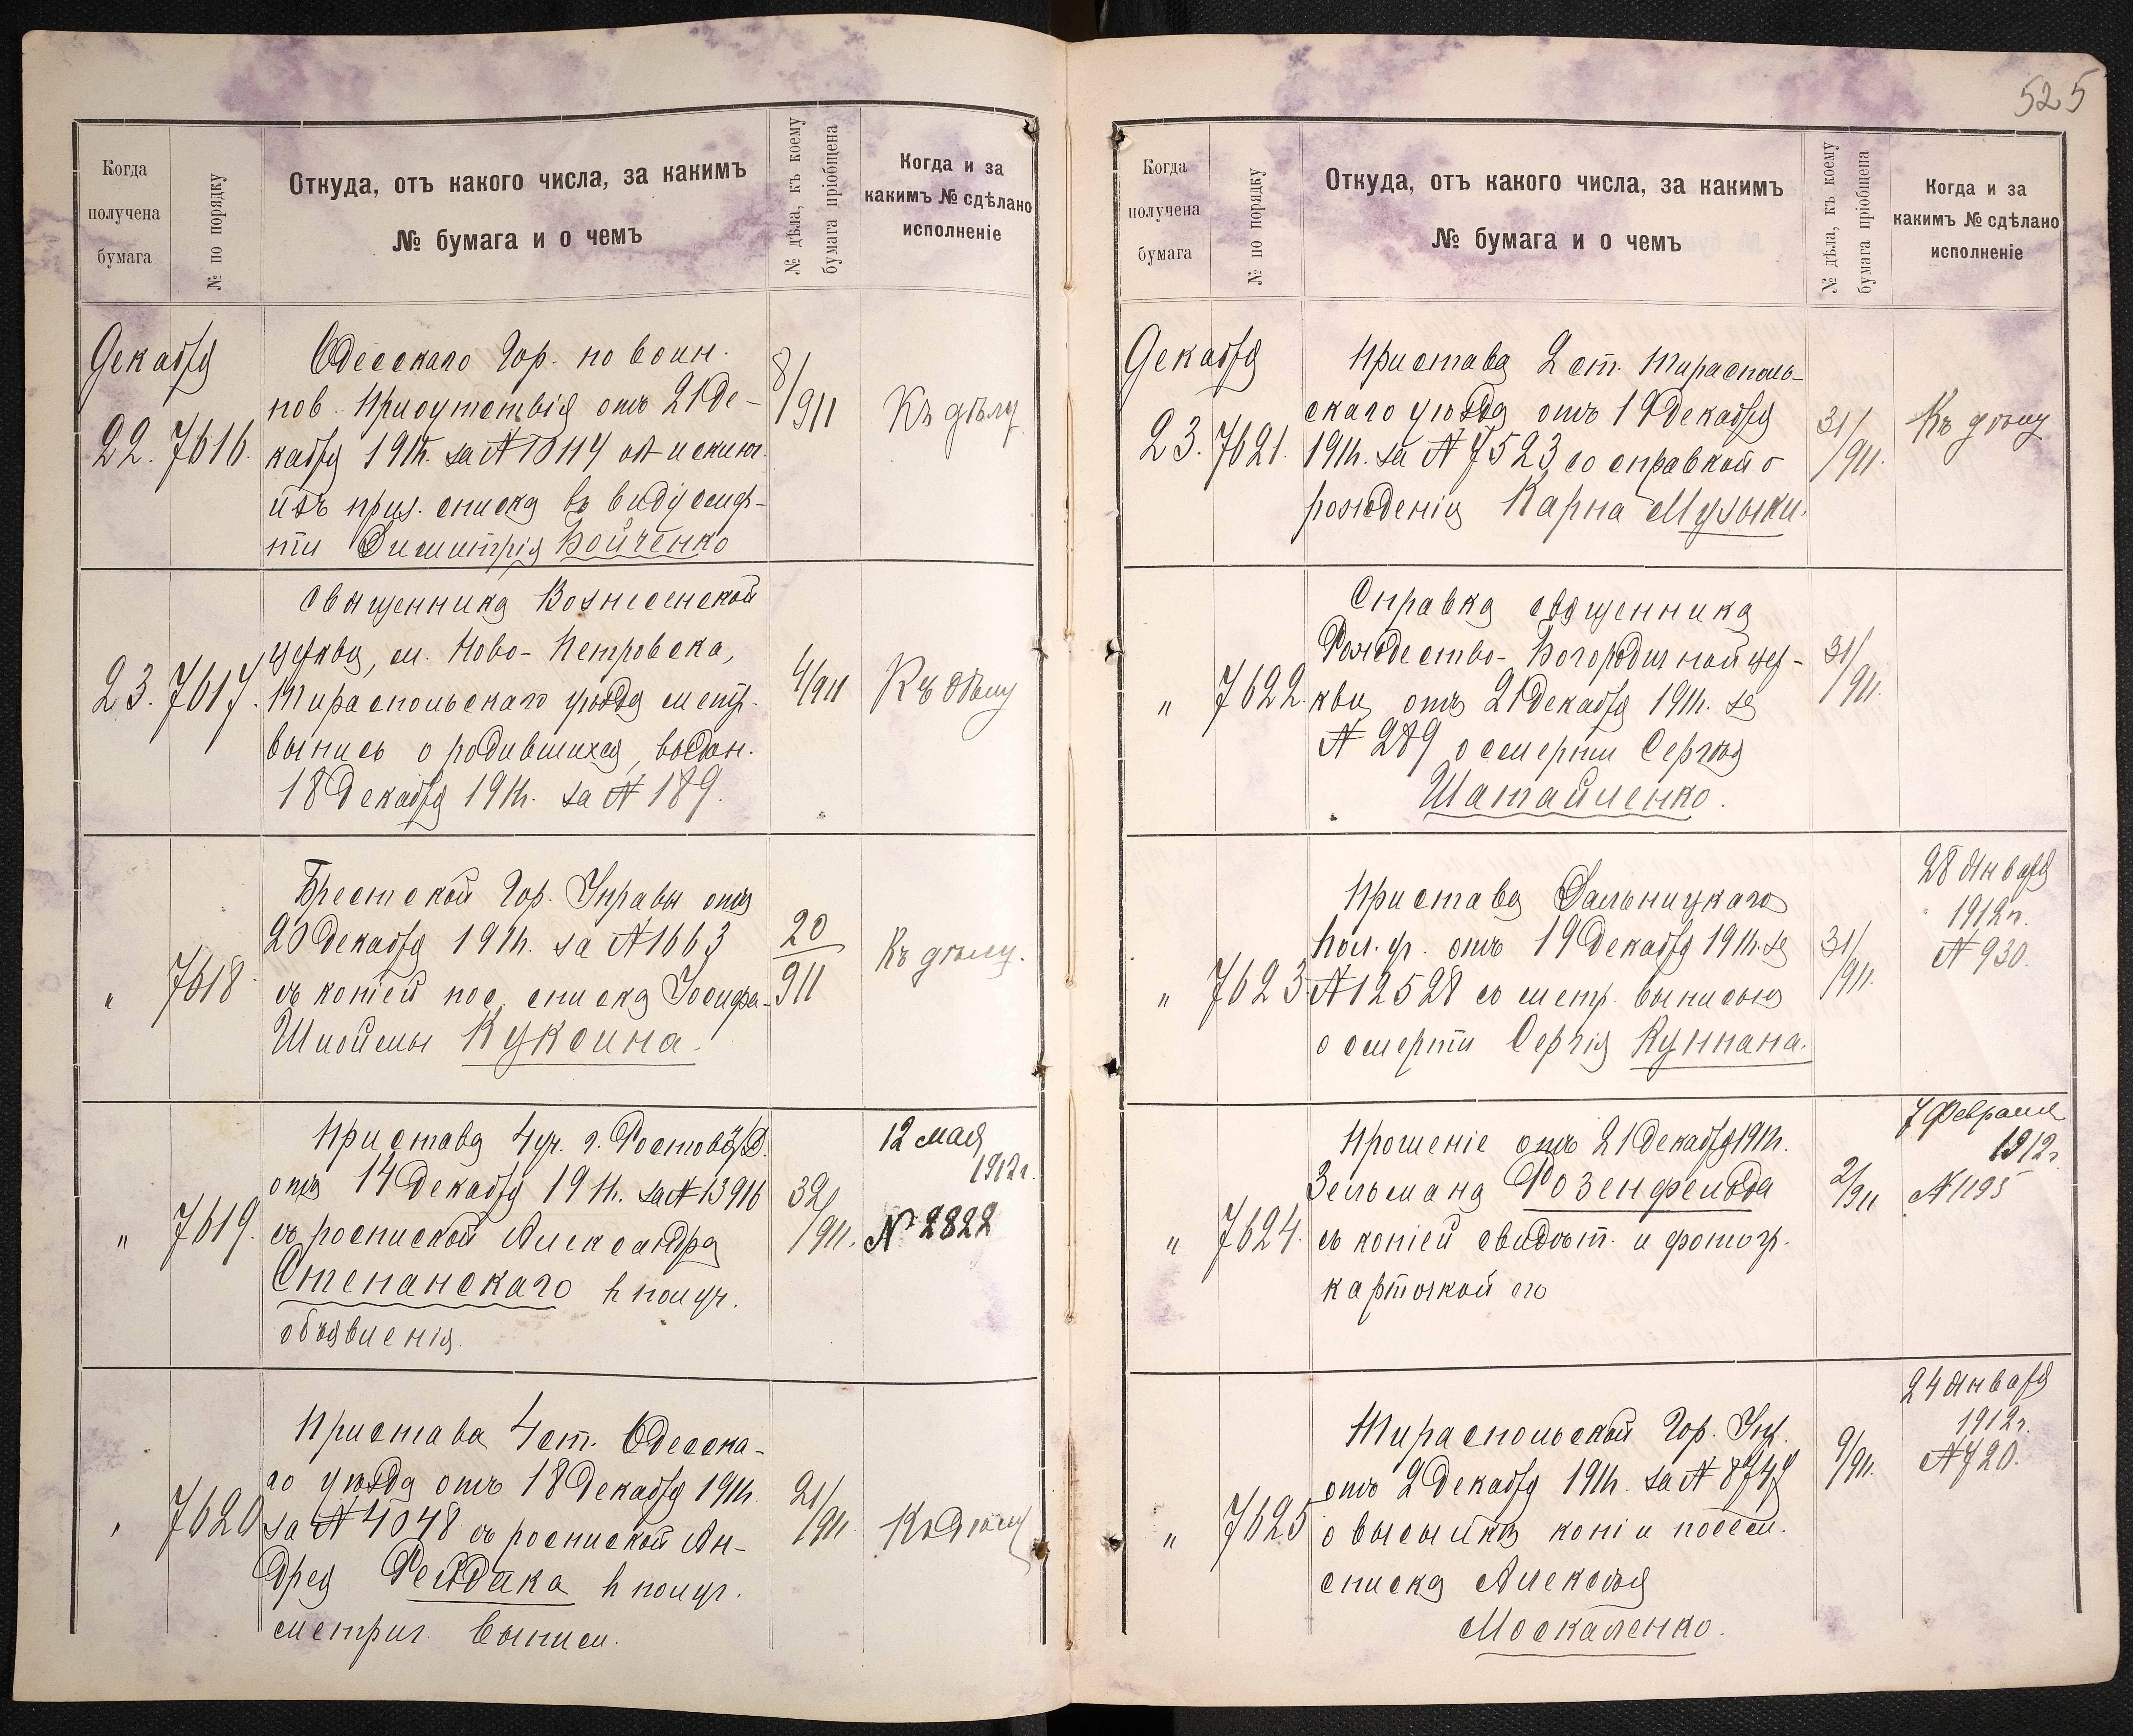 525
Когда
получена
бумага
№ по порядку
Откуда, отъ какого числа, за какимъ
№ бумага и о чемъ
№ дѣла, къ коему
бумага пріобщена
Когда и за
какимъ № сдѣлано
исполненіе
Декабря
22. 7616.
Одесскаго Гор. по воин.
пов. Присутствія отъ 21 Де-
кабря 1911г. за № 10114 об исключ.
изъ приз. списка въ виду смер-
ти Димитрія Бойченко
8/911
Къ дѣлу
23. 7617.
Священника Вознесенской
церкви, м. Ново-Петровска,
Тираспольскаго уѣзда метр.
выпись о родившихся, выдан.
18 Декабря 1911г. за № 189.
4/911
Къ дѣлу
" 7618
Брестской Гор. Управы отъ
20 Декабря 1911г. за № 1663
съ копіей пос. списка Іосифа-
Шлоймы Куксина.
20/911
Къ дѣлу.
" 7619.
Пристава 4 уч. г. Ростова н/Д.
отъ 14 Декабря 1911г. за № 13916
съ роспиской Александра
Степанскаго въ получ.
объявленія.
32/911.
12 мая
1912г.
№ 2822
" 7620
Пристава 4 ст. Одесска-
го уѣзда отъ 18 Декабря 1911г.
за № 4048 съ роспиской Ан-
дрея Рейдака въ получ.
метрич. выписи.
21/911.
Къ дѣлу
Когда
получена
бумага
№ по порядку
Откуда, отъ какого числа, за какимъ
№ бумага и о чемъ
№ дѣла, къ коему
бумага пріобщена
Когда и за
какимъ № сдѣлано
исполненіе
Декабря
23. 7621.
Пристава 2 ст. Тирасполь-
скаго уѣзда отъ 19 Декабря
1911г. за № 7523 со справкой о
рожденіи Карпа Музыки.
31/911.
Къ дѣлу
" 7622.
Справка священника
Рождество-Богородичной цер-
кви отъ 21 Декабря 1911г. за
№ 289 о смерти Сергѣя
Шатайленко.
31/911.
" 7623
Пристава Дальницкаго
пол. уч. отъ 19 Декабря 1911г. за
№ 12528 со метр. выписью
о смерти Сергія Куппана.
31/911.
28 Января
1912г.
№ 930.
" 7624.
Прошеніе отъ 21 Декабря 1911г.
Зельмана Розенфельда
съ копіей свидѣт. и фотогр.
карточкой его
2/911
7 Февраля
1912г.
№ 1195
" 7625
Тираспольской Гор. Упр.
отъ 2 Декабря 1911г. за № 8747
о высылкѣ копіи посем.
списка Алексѣя
Москаленко.
9/911.
24 Января
1912г.
№ 720.